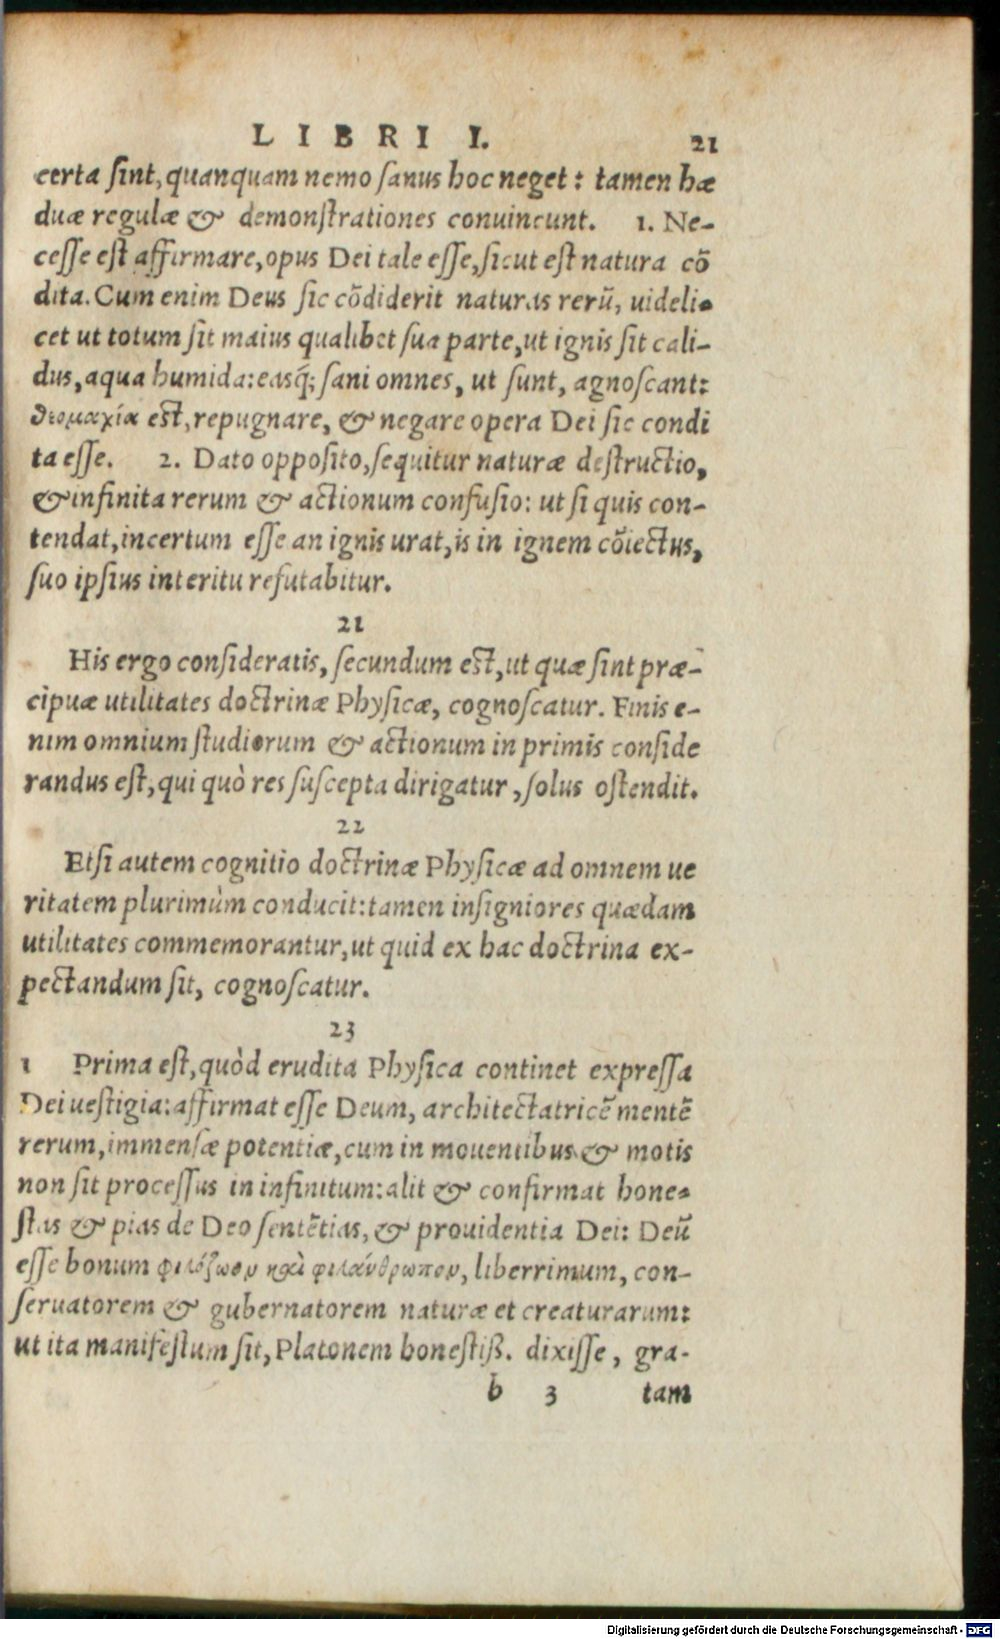 LIBRI I. 21
certa sint, quanquam nemo sanus hoc neget: tamen hæ
duæ regulæ & demonstrationes conuincunt. 1. Ne-
cesse est affirmare, opus Dei tale esse, sicut est natura cō
dita. Cum enim Deus sic cōdiderit naturas rerū, uideli-
cet ut totum sit maius qualibet sua parte, ut ignis sit cali-
dus, aqua humida: easq́; sani omnes, ut sunt, agnoscant:
θεομαχία est, repugnare, & negare opera Dei sic condi
ta esse. 2. Dato opposito, sequitur naturæ destructio,
& infinita rerum & actionum confusio: ut si quis con-
tendat, incertum esse an ignis urat, is in ignem cōiectus,
suo ipsius interitu refutabitur.
21
His ergo consideratis, secundum est, ut quæ sint præ-
cipuæ utilitates doctrinæ Physicæ, cognoscatur. Finis e-
nim omnium studiorum & actionum in primis conside
randus est, qui quò res suscepta dirigatur, solus ostendit.
22
Etsi autem cognitio doctrinæ Physicæ ad omnem ue
ritatem plurimùm conducit: tamen insigniores quædam
utilitates commemorantur, ut quid ex hac doctrina ex-
pectandum sit, cognoscatur.
23
1 Prima est, quòd erudita Physica continet expressa
Dei uestigia: affirmat esse Deum, architectatricē mentē
rerum, immensæ potentiæ, cum in mouentibus & motis
non sit processus in infinitum: alit & confirmat hone-
stas & pias de Deo sentētias, & prouidentia Dei: Deū
esse bonum φιλόζωον καὶ φιλάνθρωπον, liberrimum, con-
seruatorem & gubernatorem naturæ et creaturarum:
ut ita manifestum sit, Platonem honestiß. dixisse, gra-
b 3 tam
Digitalisierung gefördert durch die Deutsche Forschungsgemeinschaft - DFG